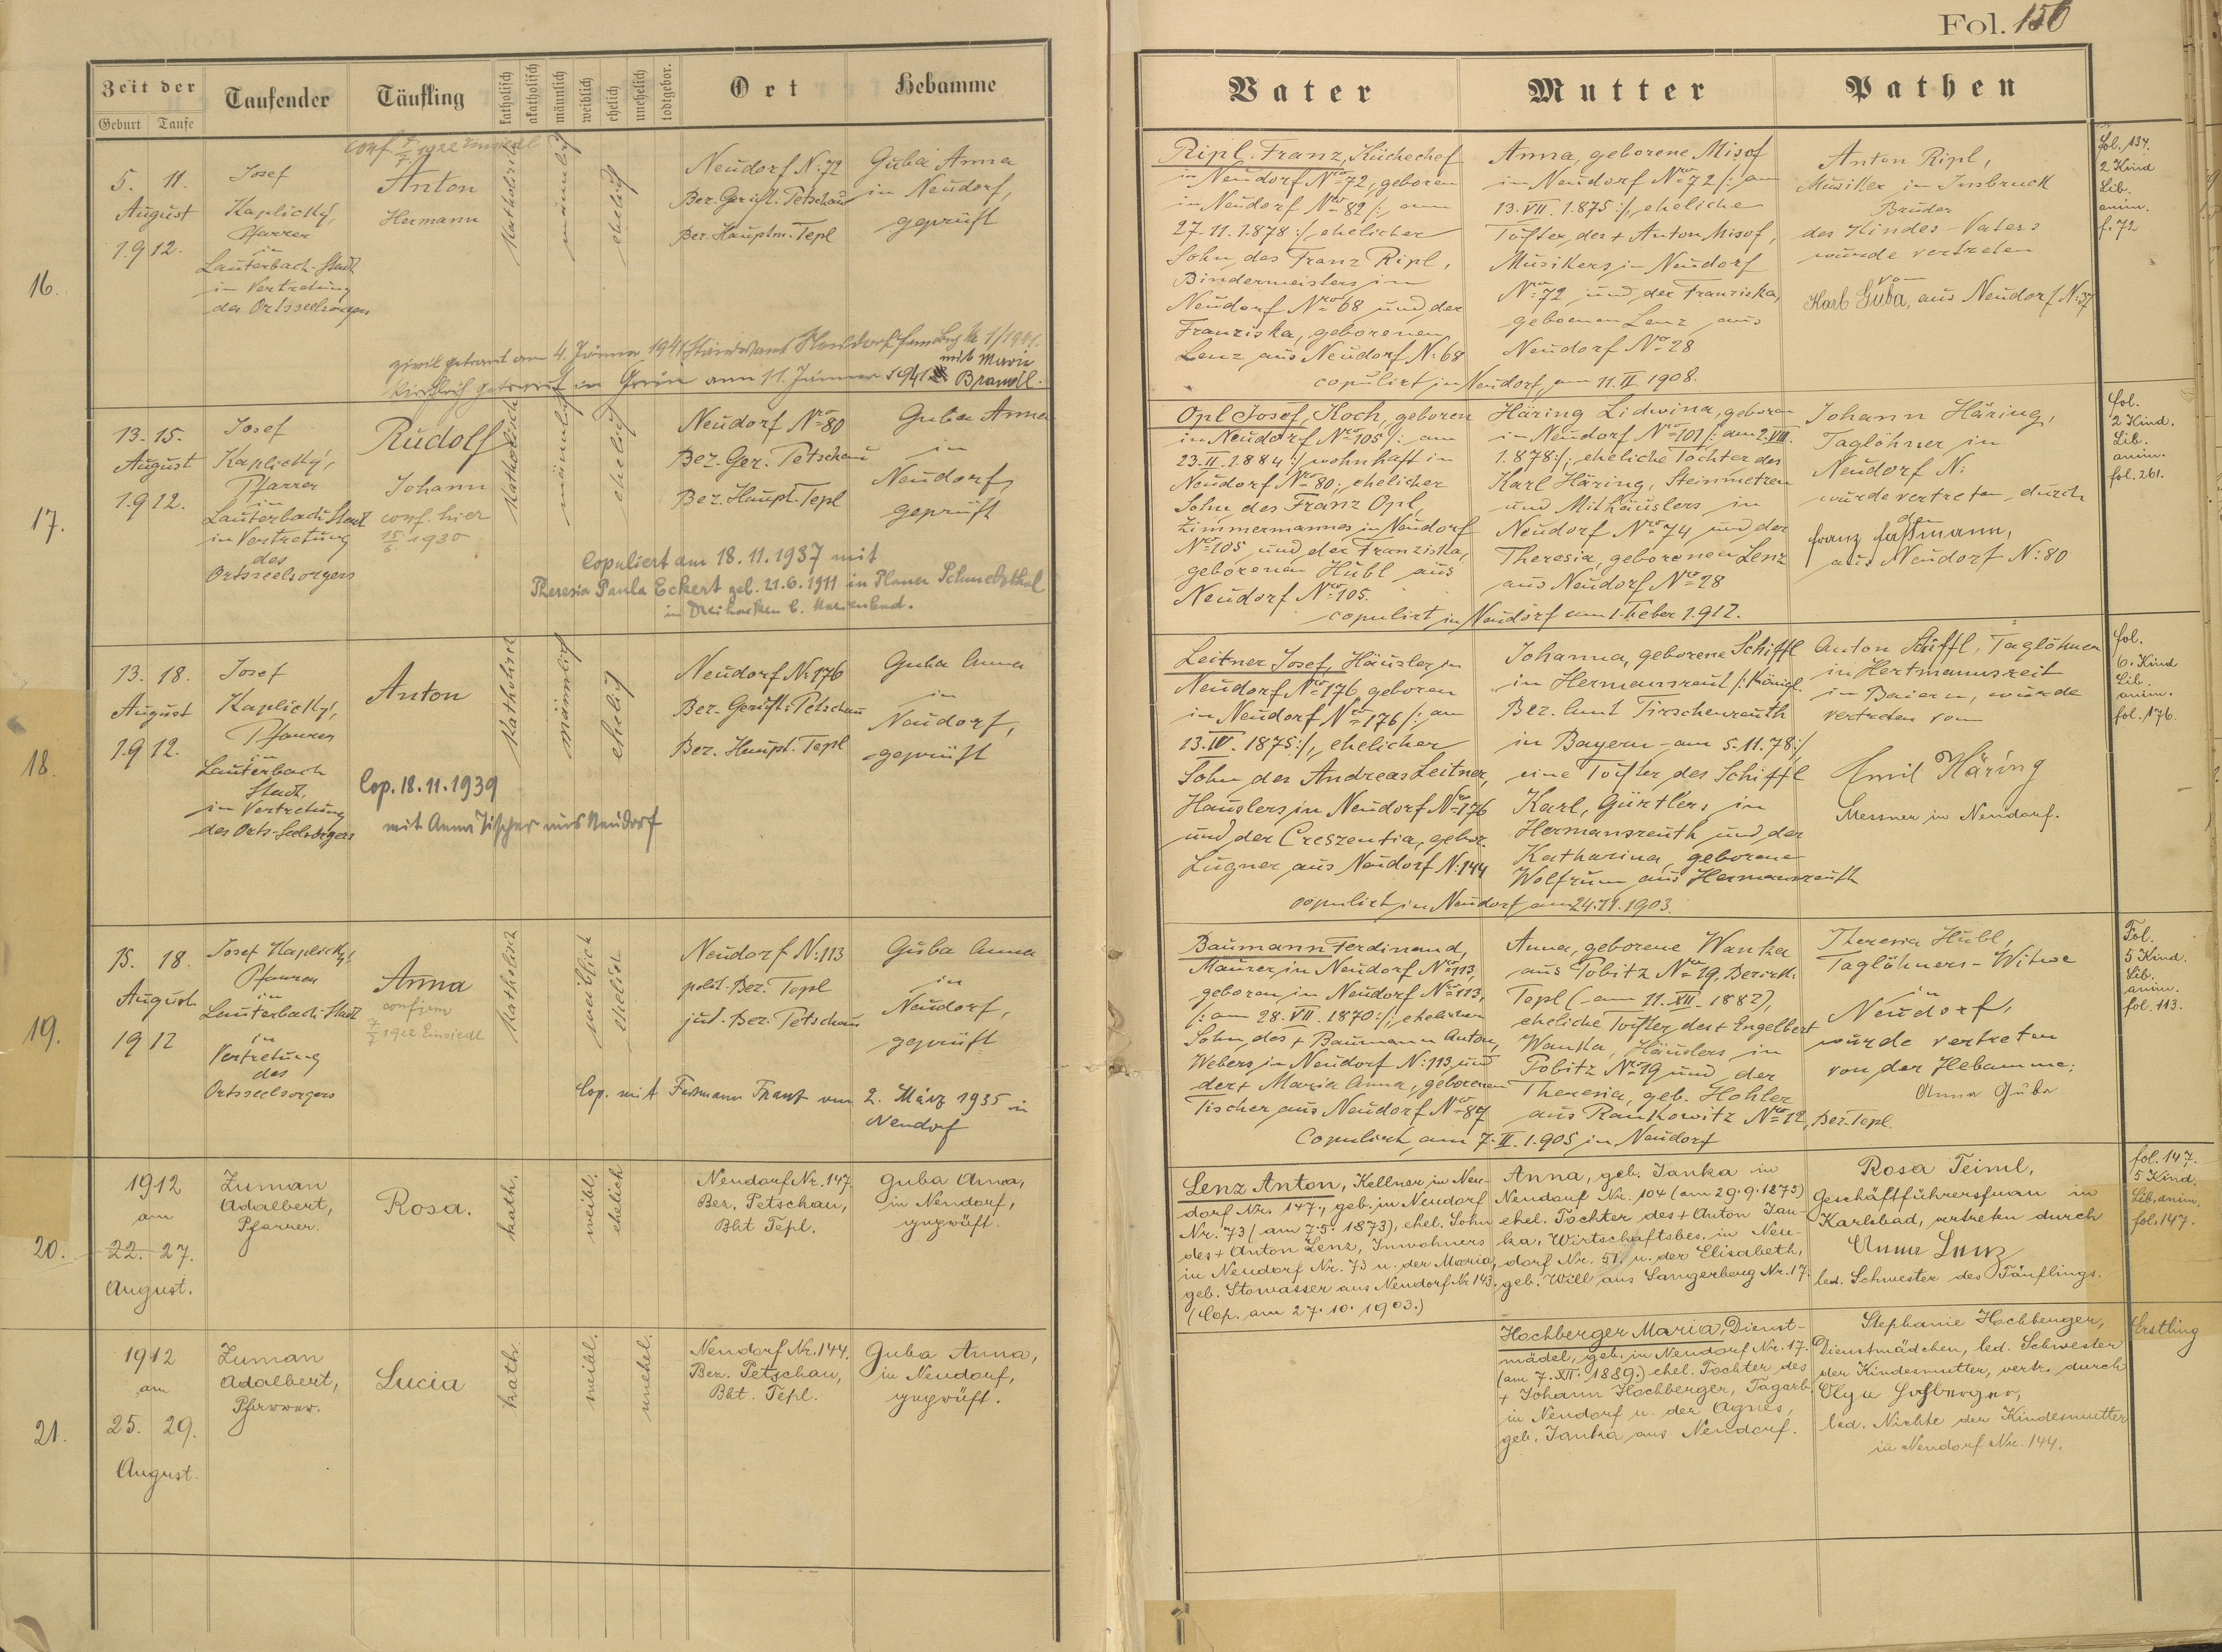 Fol. 156
Zeit der
Geburt Taufe
Taufender
Täufling
katholisch
akatholisch
männlich
weiblich
ehelich
unehelich
todtgebor.
Ort
Hebamme
Vater
Mutter
Pathen
16.
5. 11.
August
1912.
Josef
Kaplický,
Pfarrer
in
Lauterbach-Stadt
in Vertretung
des Ortsseelsorgers
conf. 7/7 1922 Einsiedl
Anton
Hermann
Katholisch
männlich
ehelich
Neudorf N: 72
Bez. Gericht: Petschau
Bez. Hauptm. Tepl
Guba Anna
in Neudorf,
geprüft
zivil getraut am 4. Jänner 1941 Standesamt
kirchlich getraut in Grün am 11. Jänner 1941
mit Marie
Brandl.
Ripl Franz, Küchechef
in Neudorf Nro 72, geboren
in Neudorf Nro 82 /: am
27. 11. 1878 :/ ehelicher
Sohn des Franz Ripl,
Bindermeisters in
Neudorf Nro 68 und der
Franziska, geborenen
Lenz aus Neudorf N: 68
Anna, geborene Misof
in Neudorf Nro 72 /: am
13. VII. 1875 :/, eheliche
Tochter des + Anton Misof,
Musikers in Neudorf
Nro 72 und der Franziska,
geborenen Lenz aus
Neudorf No 28
copulirt in Neudorf, am 11. II. 1908.
Anton Ripl,
Musiker in Insbruck
Bruder
des Kindes-Vaters
wurde vertreten
von
Karl Guba, aus Neudorf N: 37
fol. 137.
2 Kind
Lib.
anim.
f. 72
17.
13. 15.
August
1912.
Josef
Kaplický,
Pfarrer
in
Lauterbach Stadt
in Vertretung
des
Ortsseelsorgers
Rudolf
Johann
conf. hier
15/6. 1930
Katholisch
männlich
ehelich
Neudorf Nro 80
Bez. Ger. Petschau
Bez. Haupt. Tepl
Guba Anna
in
Neudorf,
geprüft
Copuliert am 18. 11. 1937 mit
Theresia Paula Eckert geb. 21. 6. 1911 in Planer Schmelzthal
in Dreihacken b. Marienbad.
Opl Josef, Koch, geboren
in Neudorf Nro 105 /: am
23. II. 1884 :/ wohnhaft in
Neudorf Nro 80; ehelicher
Sohn des Franz Opl,
Zimmermannes in Neudorf
Nro 105 und der Franziska,
geborenen Hübl aus
Neudorf Nro 105.
Häring Lidwina, geboren
in Neudorf Nro 101 /: am 2. VIII.
1878 :/; eheliche Tochter des
Karl Häring, Steinmetzen
und Mithäuslers in
Neudorf Nro 74 und der
Theresia, geborenen Lenz
aus Neudorf Nro 28
copulirt in Neudorf am 1. Feber 1912.
Johann Häring,
Taglöhner in
Neudorf N:
wurde vertreten durch
den
Franz Faßmann,
aus Neudorf N: 80
fol.
2 Kind.
Lib.
anim.
fol. 261.
18.
13. 18.
August
1912.
Josef
Kaplický,
Pfarrer
in
Lauterbach
Stadt,
in Vertretung
des Orts-Seelsorgers
Anton
Cop. 18. 11. 1939
mit Anna Tischer aus Neudorf
Katholisch
männlich
ehelich
Neudorf N: 176
Bez. Gericht: Petschau
Bez. Haupt. Tepl
Guba Anna
in
Neudorf,
geprüft
Leitner Josef, Häusler in
Neudorf Nro 176, geboren
in Neudorf Nro 176 /: am
13. IV. 1875 :/, ehelicher
Sohn des Andreas Leitner,
Häuslers in Neudorf Nro 176
und der Creszentia, gebor.
Lugner aus Neudorf N: 144
Johanna, geborene Schiffl
in Hermansreut /: Königl.
Bez. Amt Tirschenreuth
in Bayern - am 5. 11. 78 :/,
eine Tochter des Schiffl
Karl, Gürtlers in
Hermansreuth und der
Katharina, geborene
Wolfrum aus Hermansreuth
copulirt in Neudorf am 24. 11. 1903.
Anton Schiffl, Taglöhner
in Hertmannsreit
in Baiern, wurde
vertreten vom
Emil Häring
Messner in Neudorf.
fol.
6. Kind
Lib.
anim.
fol. 176.
19.
15. 18.
August
1912
Josef Kaplický,
Pfarrer
in
Lauterbach Stadt
in
Vertretung
des
Ortsseelsorgers
Anna
confirm
7/7 1922 Einsiedl
Katholisch
weiblich
ehelich
Neudorf N: 113
polit. Bez. Tepl
jud. Bez. Petschau
Guba Anna
in
Neudorf,
geprüft
Cop. mit Fassmann Franz am 2. März 1935 in
Neudorf
Baumann Ferdinand,
Maurer in Neudorf Nro 113,
geboren in Neudorf Nro 113,
/: am 28. VII. 1870 :/; ehelichen
Sohn des + Baumann Anton,
Webers in Neudorf N: 113 und
der + Maria Anna, geborenen
Tischer aus Neudorf Nro 87
Anna, geborene Wanka
aus Pobitz Nro 19, Bezirk.
Tepl (am 11. XII. 1882),
eheliche Tochter des + Engelbert
Wanka, Häuslers in
Pobitz Nro 19 und der
Theresia, geb. Hohler
aus Rankowitz Nro 12, Bez. Tepl.
Copulirt am 7. II. 1905 in Neudorf
Theresia Hübl,
Taglöhners-Witwe
in
Neudorf,
wurde vertreten
von der Hebamme:
Anna Guba
Fol.
5 Kind.
Lib.
anim.
fol. 113.
20.
1912
am
22. 27.
August.
Zuman
Adalbert,
Pfarrer.
Rosa.
kath.
weibl.
ehelich
Neudorf Nr. 147.
Bez. Petschau,
Bht Tepl.
Guba Anna,
in Neudorf,
geprüft.
Lenz Anton, Kellner in Neu-
dorf Nr. 147., geb. in Neudorf
Nr. 73 (am 7. 5. 1873), ehel. Sohn
des + Anton Lenz, Inwohners
in Neudorf Nr. 73 u. der Maria,
geb. Stowasser aus Neudorf Nr 143.
(Cop. am 27. 10. 1903.)
Anna, geb. Janka in
Neudorf Nr. 104 (am 29. 9. 1875)
ehel. Tochter des + Anton Jan-
ka, Wirtschaftsbes. in Neu-
dorf Nr. 51. u. der Elisabeth,
geb. Will aus Sangerberg Nr. 17.
Rosa Teiml,
Geschäftführersfrau in
Karlsbad, vertreten durch
Anna Lenz
led. Schwester des Täuflings.
fol. 147.
5 Kind.
Lib. anim.
fol. 147.
21.
1912
am
25. 29.
August.
Zuman
Adalbert,
Pfarrer.
Lucia
kath.
weibl.
unehel.
Neudorf Nr. 144.
Bez. Petschau,
Bht. Tepl.
Guba Anna,
in Neudorf,
geprüft.
Hochberger Maria, Dienst-
mädel, geb. in Neudorf Nr. 17.
(am 7. XII. 1889.) ehel. Tochter des
+ Johann Hochberger, Tagarb.
in Neudorf u. der Agnes,
geb. Janka aus Neudorf.
Stephanie Hochberger,
Dienstmädchen, led. Schwester
der Kindesmutter, vertr. durch
Olga Hochberger,
led. Nichte der Kindesmutter
in Neudorf Nr. 144.
Erstling